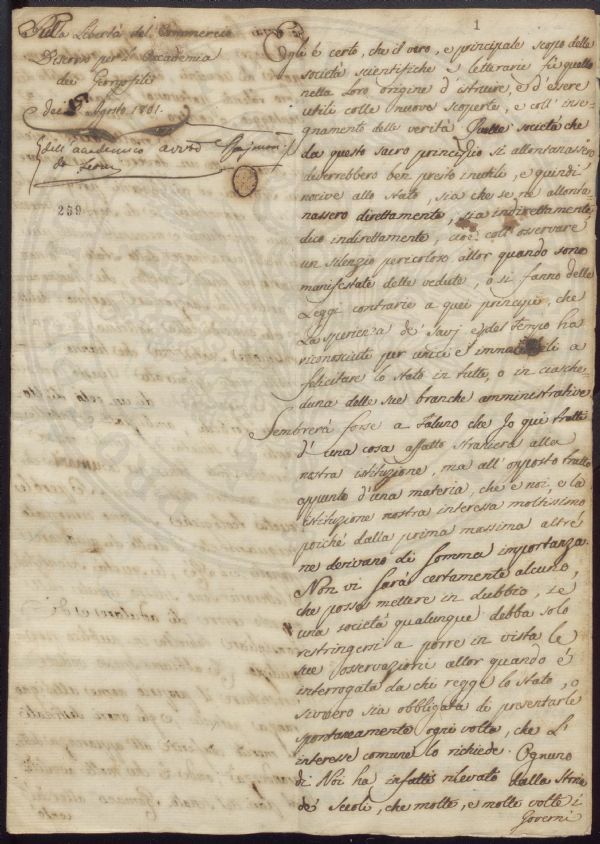 Sulla Libertà del Commercio
Discorso per l'Accademia
dei Georgofili
dei 5 Agosto 1801.
dell'accademico avvto
259
1
Egli è certo, che il vero, e principale scopo delle
società scientifiche e letterarie fù quello
nella loro origine d'istruire, e d'essere
utili colle nuove scoperte, e coll'inse-
gnamento delle verità. Quelle società che
da questo sacro principio si allontanassero
diverrebbero ben presto inutili, e quindi
nocive allo stato, sia che se ne allonta-
nassero direttamente, sia indirettamente
dico indirettamente, cioè coll'osservare
un silenzio pericoloso allor quando sono
manifestate delle vedute, o si fanno delle
Leggi contrarie a quei principj, che
la sperienza de' Savj e del Tempo ha
riconosciuti per unici e immutabili a
felicitare lo stato in tutte, o in ciasche-
duna delle sue branche amministrative
Sembrerà forse a Taluno che Io qui tratti
d'una cosa affatto straniera alla
nostra istituzione, ma all'opposto tratto
appunto d'una materia, che e noi, e la
istituzione nostra interessa moltissimo
poiché dalla prima massima altre
ne derivano di somma importanza.
Non vi sarà certamente alcuno,
che possa mettere in dubbio, se
una società qualunque debba solo
restringersi a porre in vista le
sue osservazioni allor quando è
interrogata da chi regge lo Stato, o
sivvero sia obbligata di presentarle
spontaneamente ogni volta, che l'
interesse comune lo richiede. Ognuno
di Noi ha infatti rilevato dalla Storia
de' Secoli, che molte, e molte volte i
Governi